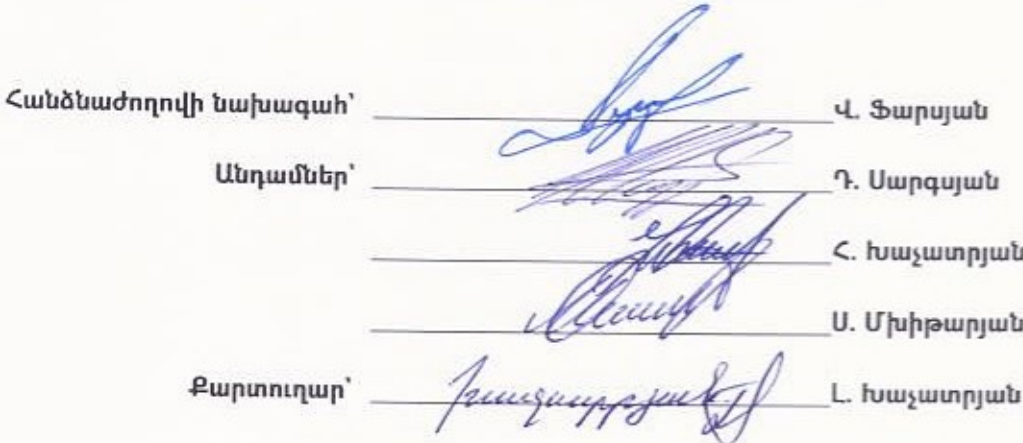 Հանձնաժողովի նախագահ՝ Վ. Ֆարսյան
Անդամներ՝ Դ. Սարգսյան
Հ. Խաչատրյան
Ս. Մխիթարյան
Քարտուղար՝ Լ. Խաչատրյան